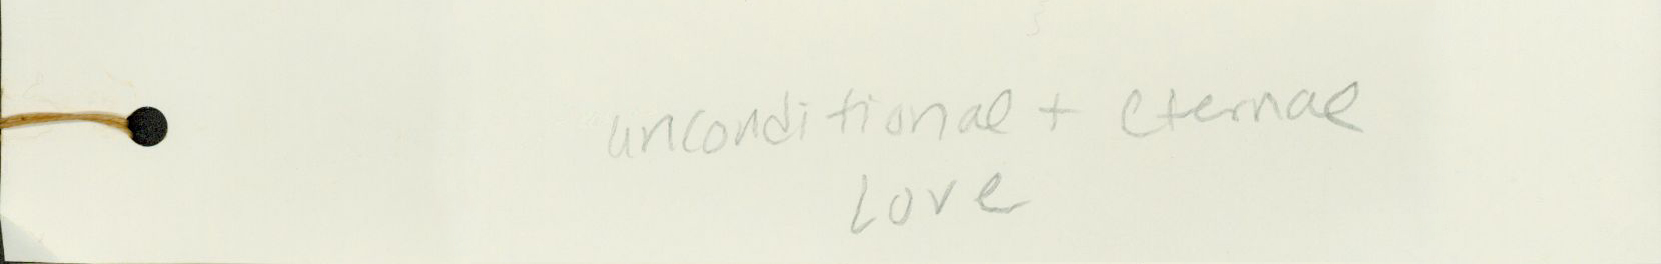 unconditional + eternal
Love